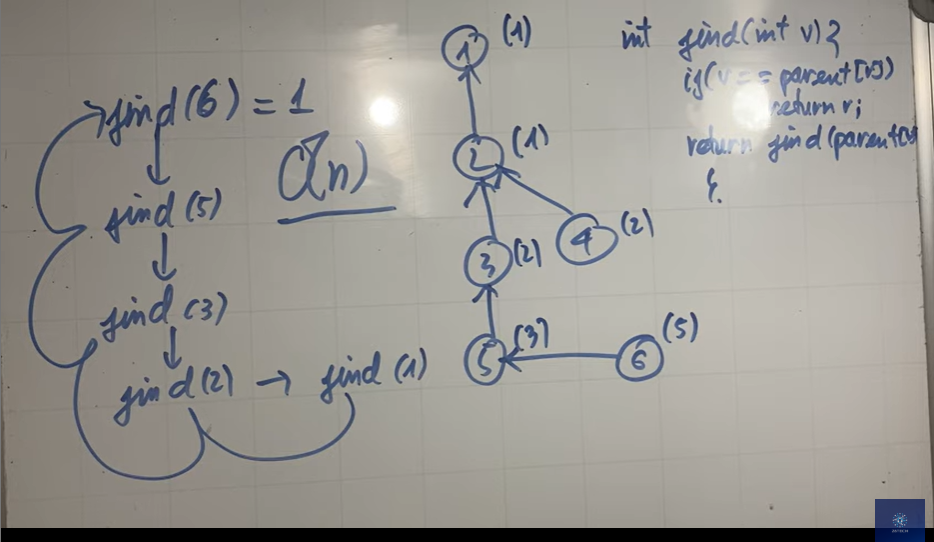 find(6) = 1
find(5)
find(3)
find(2) → find(1)
O(n)
1 (1)
2 (1)
3 (2)
4 (2)
5 (3)
6 (5)
int find(int v){
if(v == parent[v])
return v;
return find(parent[v]
}